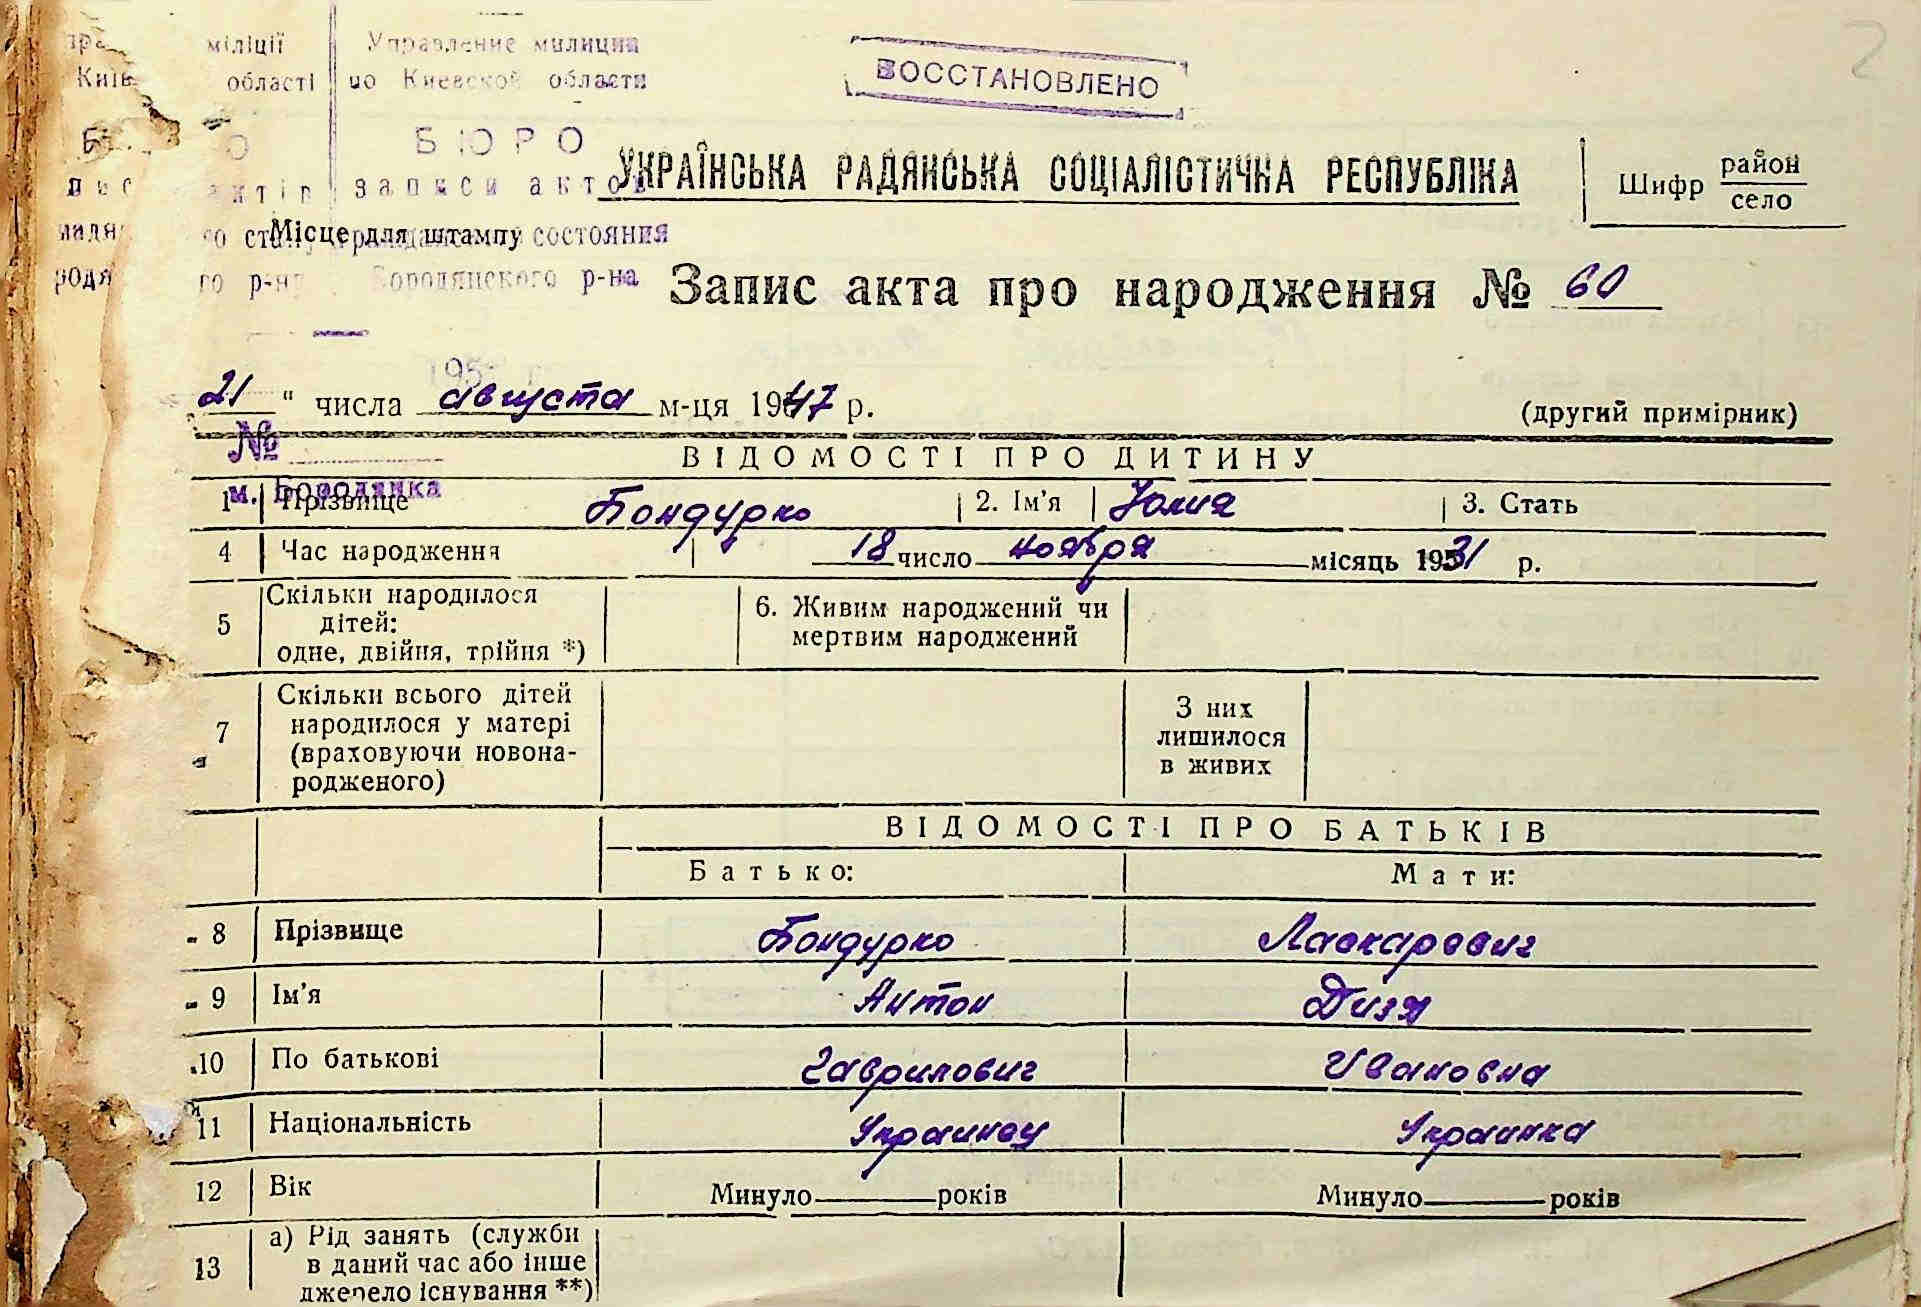 міліції Управление милиции
області по Киевской области
ВОССТАНОВЛЕНО
БЮРО
актів записи актов
УКРАЇНСЬКА РАДЯНСЬКА СОЦІАЛІСТИЧНА РЕСПУБЛІКА
Шифр район
село
Місце для штампу состояния
го р-ну Бородянского р-на
Запис акта про народження № 60
21 " числа августа м-ця 1947 р.
(другий примірник)
№
ВІДОМОСТІ ПРО ДИТИНУ
м. Бородянка
1 Прізвище Бондурко 2. Ім'я Юлия 3. Стать
4 Час народження 18 число ноября місяць 1931 р.
5 Скільки народилося дітей: одне, двійня, трійня *)
6. Живим народжений чи мертвим народжений
7 Скільки всього дітей народилося у матері (враховуючи новонародженого)
З них лишилося в живих
ВІДОМОСТІ ПРО БАТЬКІВ
Батько: Мати:
8 Прізвище Бондурко Ласкаревич
9 Ім'я Антон
10 По батькові Гаврилович Ивановна
11 Національність Украинец Украинка
12 Вік Минуло років Минуло років
13 а) Рід занять (служби в даний час або інше джерело існування **)